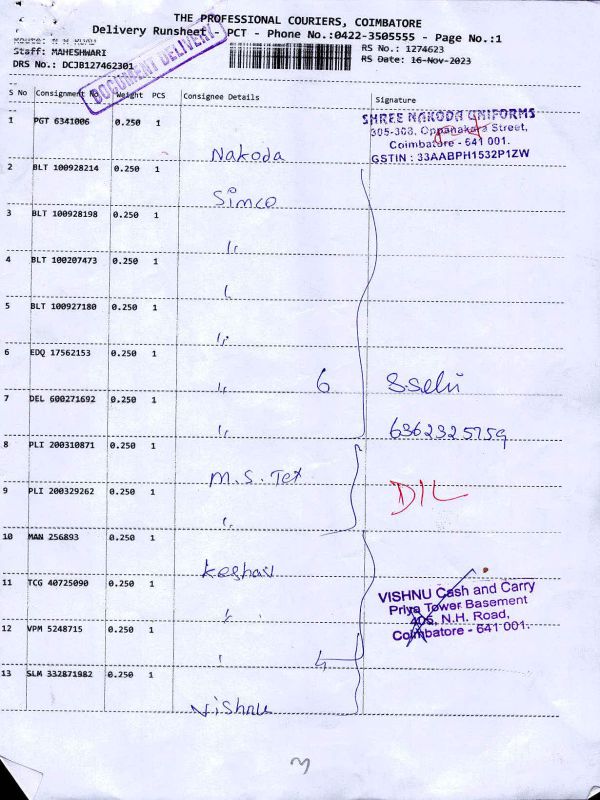 THE PROFESSIONAL COURIERS, COIMBATORE
Delivery Runsheet - PCT - Phone No.:0422-3505555 - Page No.:1
Staff: MAHESHWARI
RS No.: 1274623
DRS No.: DCJB127462301
RS Date: 16-Nov-2023
DOCUMENT DELIVERY
S No Consignment No. Weight PCS Consignee Details Signature
1 PGT 6341006 0.250 1 Nakoda
SHREE NAKODA UNIFORMS
305-308, Oppanakara Street,
Coimbatore - 641 001.
GSTIN : 33AABPH1532P1ZW
2 BLT 100928214 0.250 1 Simco
3 BLT 100928198 0.250 1 "
4 BLT 100207473 0.250 1 "
5 BLT 100927180 0.250 1 "
6 EDQ 17562153 0.250 1 " 6
7 DEL 600271692 0.250 1 "
6362325759
8 PLI 200310871 0.250 1 M.S. Tex
9 PLI 200329262 0.250 1 "
10 MAN 256893 0.250 1 Keshav
11 TCG 40725090 0.250 1 "
VISHNU Cash and Carry
Priya Tower Basement
405, N.H. Road,
Coimbatore - 641 001.
12 VPM 5248715 0.250 1 " 4
13 SLM 332871982 0.250 1 Vishnu